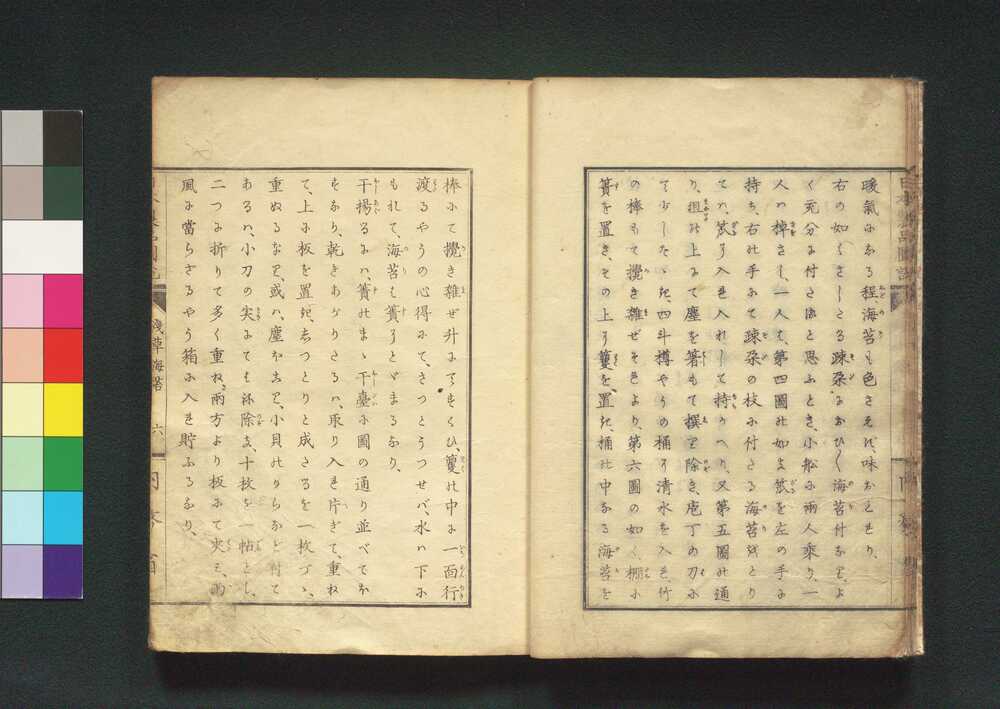 暖氣になる程、海苔も色さそず、味おとるなり、
右の如くさしたる疎朶におひ〱海苔付なり、よ
く充分に付たると思ふとき、小舩に兩人乘り、一
人ハ棹さし、一人ハ、第四圖の如よ笊を左の手に
持ち、右の手にて疎朶の枝に付たる海苔をとり
てハ、笊へ入き入れして持かへり、又第五圖の通
り、俎の上にて塵を箸もて撰み除き、庖丁の刀に
て少したゝき、四斗樽やうの桶へ清水を入き、竹
の棒もて攪き雜ぜそきより、第六圖の如く、棚に
簀を置き、その上へ籆を置き、桶の中なる海苔を
棒にて攪き雜ぜ升にてすくひ、籆の中に一面行
渡るやうの心得にて、さつとうつせバ、水ハ下に
もれて、海苔も簀へとゞまるなり、
干揚るにハ、簀のまゝ干臺に圖の通り並べてほ
すなり、乾きあがりたるハ、取り入き片ぎて、重ね
て、上に板を置き、しつとりと成たるを一枚づゝ、
重ぬるなり、或ハ、塵ほこり、小貝のからなど付て
あるハ、小刀の尖にてよく除き、十枚を一帖とし、
二つに折りて多く重ね、兩方より板にて夾み、
風に當らざるやう箱に入き貯ふるなり、
淺草海苔
六